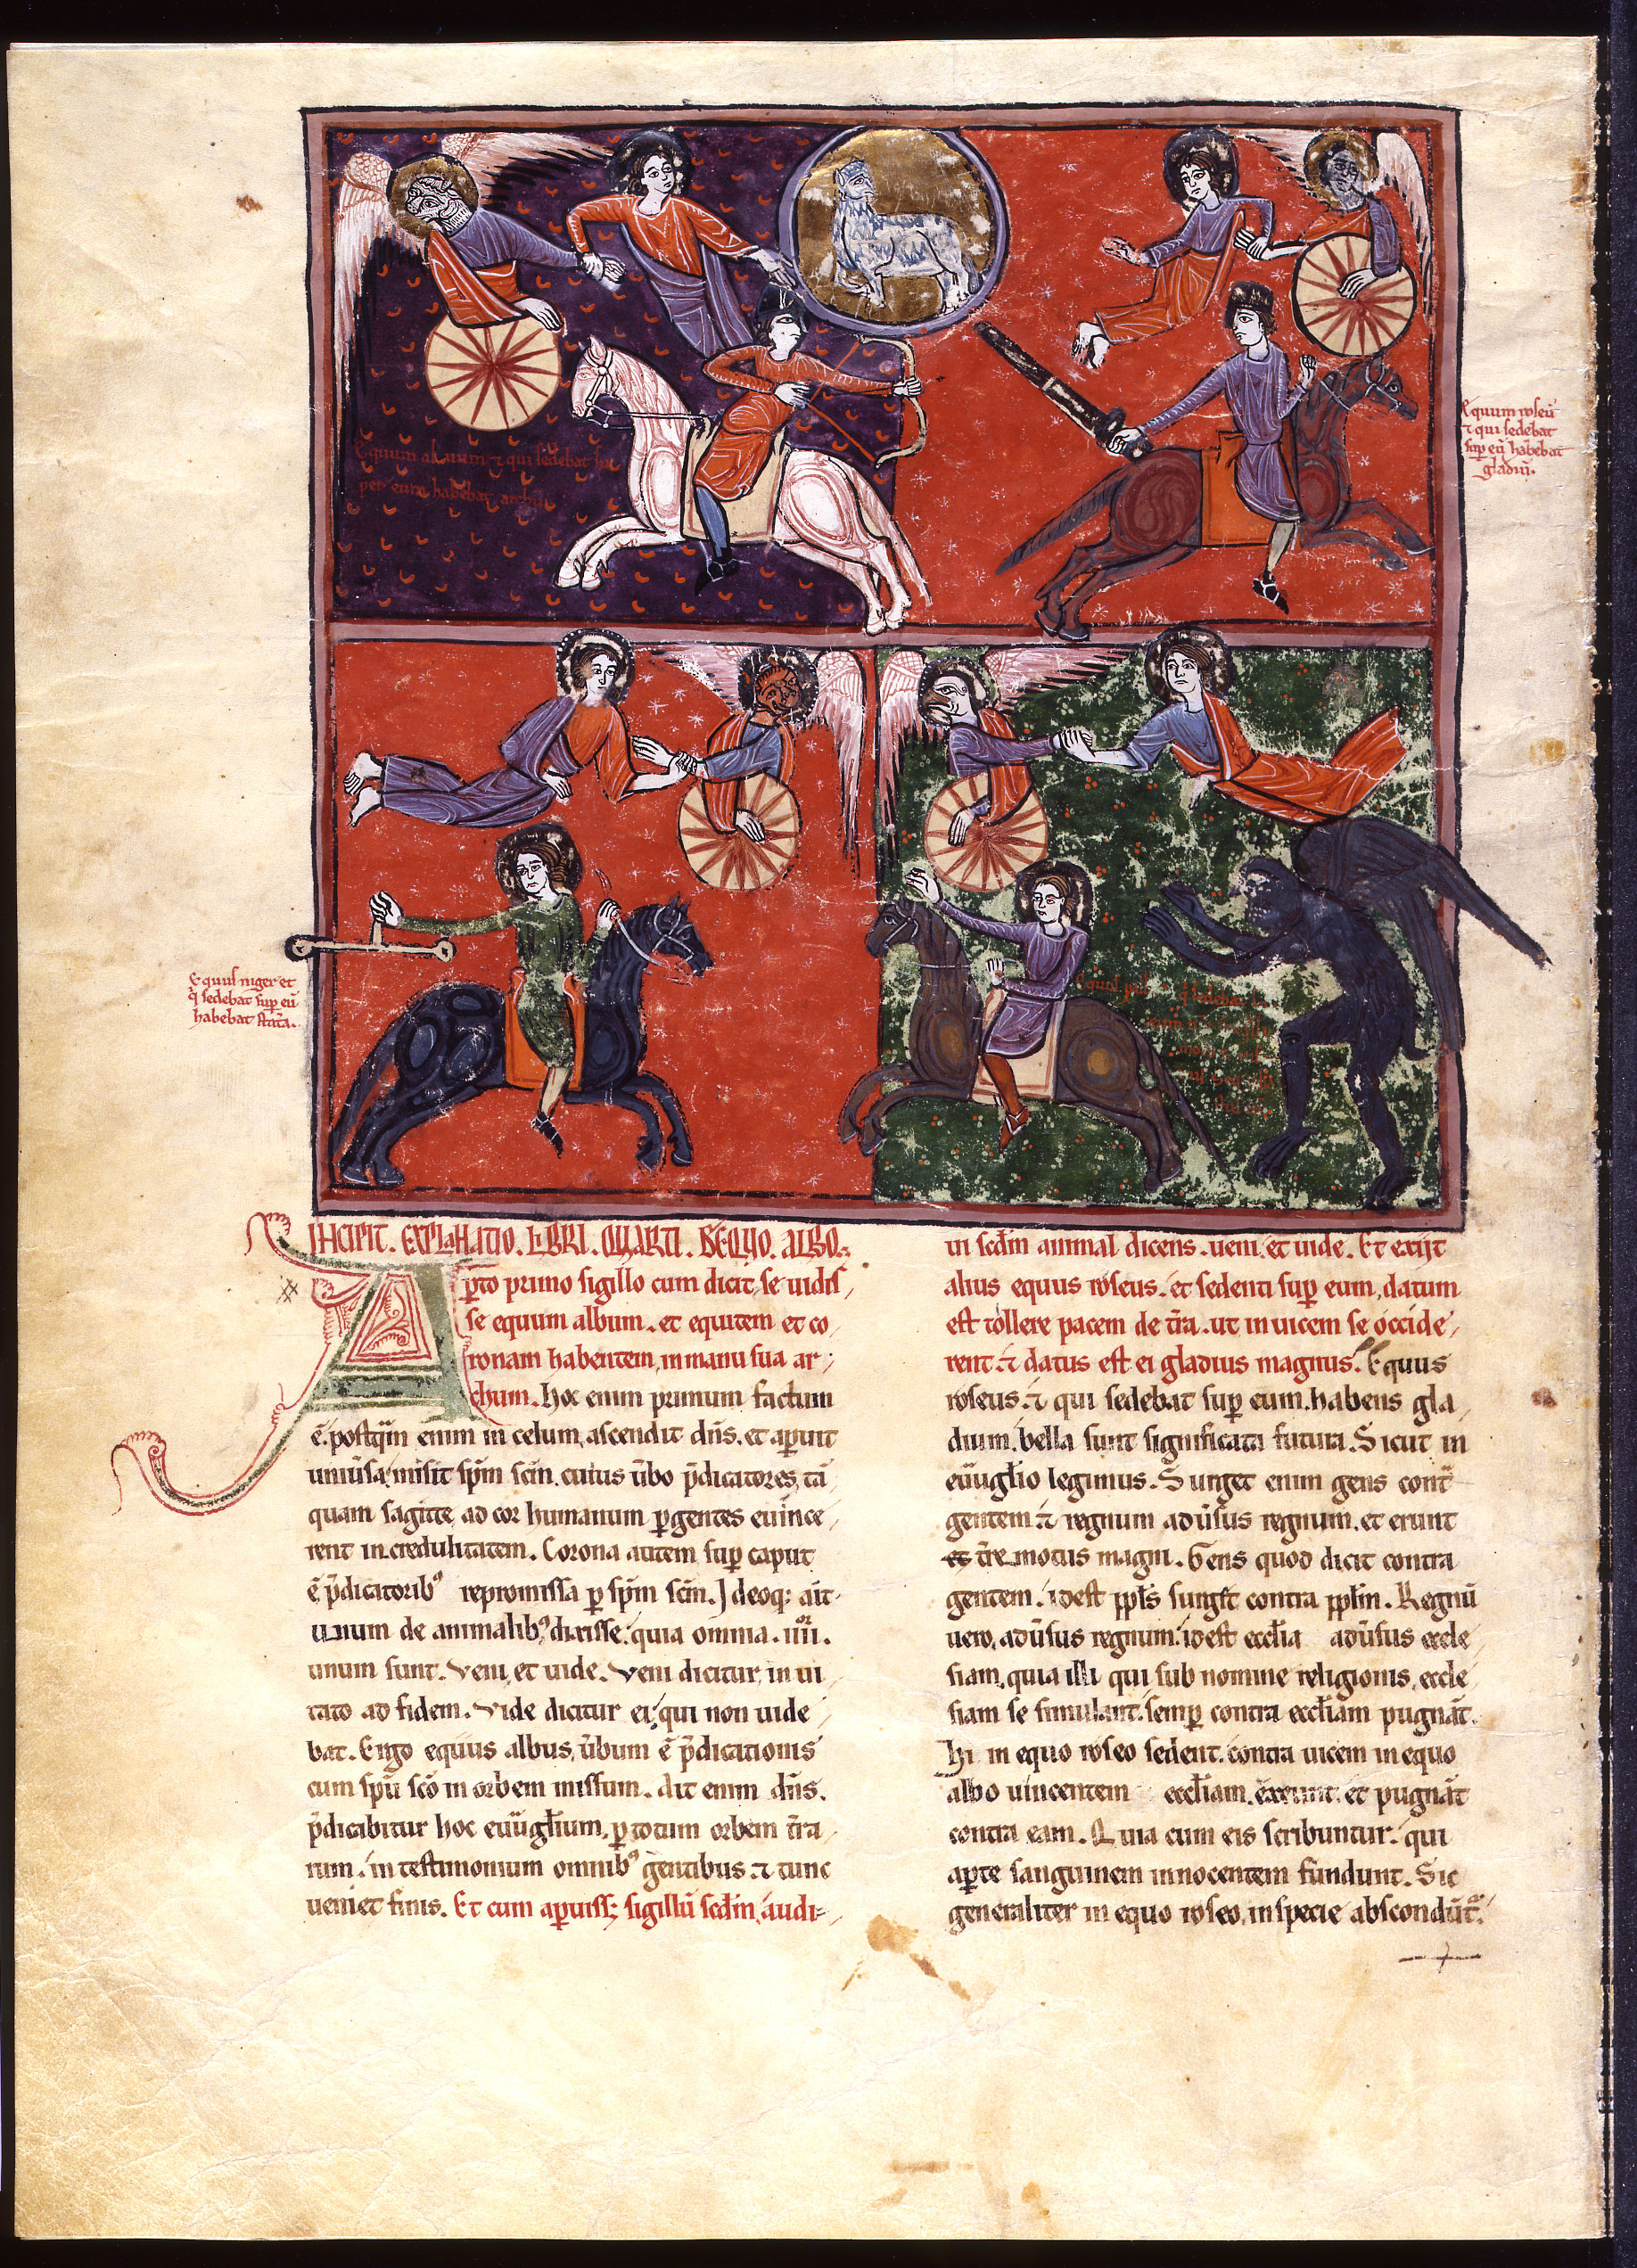 Equum album ⁊ qui sedebat su
per eum habebat archum
Equum roseū
⁊ qui sedebat
sup eū habebat
gladiū.
Equus niger et
q̄ sedebat sup eū
habebat statā.
INCIPIT. EXPLANATIO. LIBRI. QUARTI. DE EQUO. ALBO.
Aꝑto primo sigillo cum dicit, se uidis
se equum album. et equitem et co
ronam habentem, in manu sua ar
chum. hoc enim primum factum
ē. postq̄m enim in celum, ascendit dn̄s. et aꝑuit
uniūsa. misit sp̄m sc̄m. cuius ūbo p̄dicatores, tā
quam sagitte, ad cor humanum ꝑgentes euince
rent incredulitatem. Corona autem, sup caput
ē p̄dicatorib⁹ repromissa ꝑ sp̄m sc̄m. Ideoq; ait
unum de animalib⁹, dixisse. quia omnia. iiiior.
unum sunt. veni, et uide. veni dicitur, in ui
tato ad fidem. vide dicitur ei, qui non uide
bat. Ergo equus albus, ūbum ē p̄dicationis
cum sp̄u sc̄o in orbem missum. Ait enim dn̄s.
p̄dicabitur hoc euūgłium, ꝑ totum orbem t̄ra
rum. in testimonium omnib⁹ gentibus. ⁊ tunc
ueniet finis. Et cum aꝑuiss; sigillū sc̄dm, audi
ui sc̄dm animal dicens. ueni. et uide. Et exiit
alius equus roseus. et sedenti sup eum, datum
est tollere pacem de t̄ra. ut inuicem se occide
rent. ⁊ datus est ei gladius magnus. Equus
roseus. ⁊ qui sedebat sup eum. habens gla
dium. bella sunt significata futura. Sicut in
euūglio legimus. Surget enim gens cont̄
gentem. ⁊ regnum adūsus regnum. et erunt
et t̄re motus magni. Gens quod dicit contra
gentem. idest ppłs surgt̄ contra ppłm. Regnū
uero, adūsus regnum. idest eccłia adūsus eccle
siam, quia illi qui sub nomine religionis, eccle
siam se simulant. semp contra eccłiam pugnāt.
Hi in equo roseo sedent. contra uicem in equo
albo uincentem eccłiam. exeunt. et pugnāt
contra eam. Quia cum eis scribuntur. qui
aꝑte sanguinem innocentem fundunt. Sic
generaliter in equo roseo, in specie abscondūt̄.